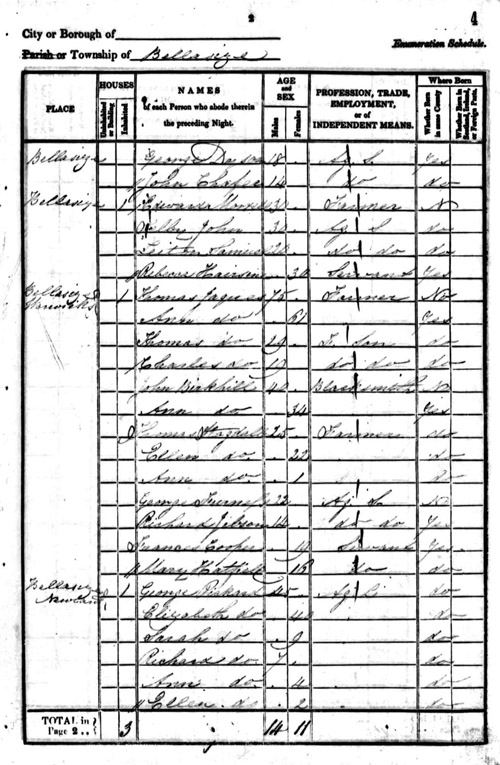 2
4
City or Borough of
Parish or Township of Bellasize
Enumeration Schedule.
PLACE
HOUSES
Uninhabited or Building
Inhabited
NAMES of each Person who abode therein the preceding Night.
AGE and SEX
Males
Females
PROFESSION, TRADE, EMPLOYMENT, or of INDEPENDENT MEANS.
Where Born
Whether Born in same County
Whether Born in Scotland, Ireland, or Foreign Parts.
Bellasize George 18 Ag L Yes
John 14 do do
Bellasize 1 Edward 30 Farmer N
John 30 Ag L do
Samuel 20 do do do
Rebecca 30 Servant Yes
Bellasize 1 Thomas Jaques 75 Farmer No
Ann do 61 Yes
Thomas do 29 F Son do
Charles do 19 do do do
John Birkhill 40 Blacksmith N
Ann do 34 Yes
Thomas 25 Farmer do
Ellen do 22 do
Ann do 1 do
George 32 Ag L No
Richard 14 do do Yes
Frances Cooper 19 Servant Yes
Mary Hatfield 16 do do
Bellasize 1 George 45 Ag L do
Elizabeth do 40 do
Sarah do 9 do
Richard do 7 do
Ann do 4 do
Ellen do 2 do
TOTAL in Page 2 .. 3 14 11